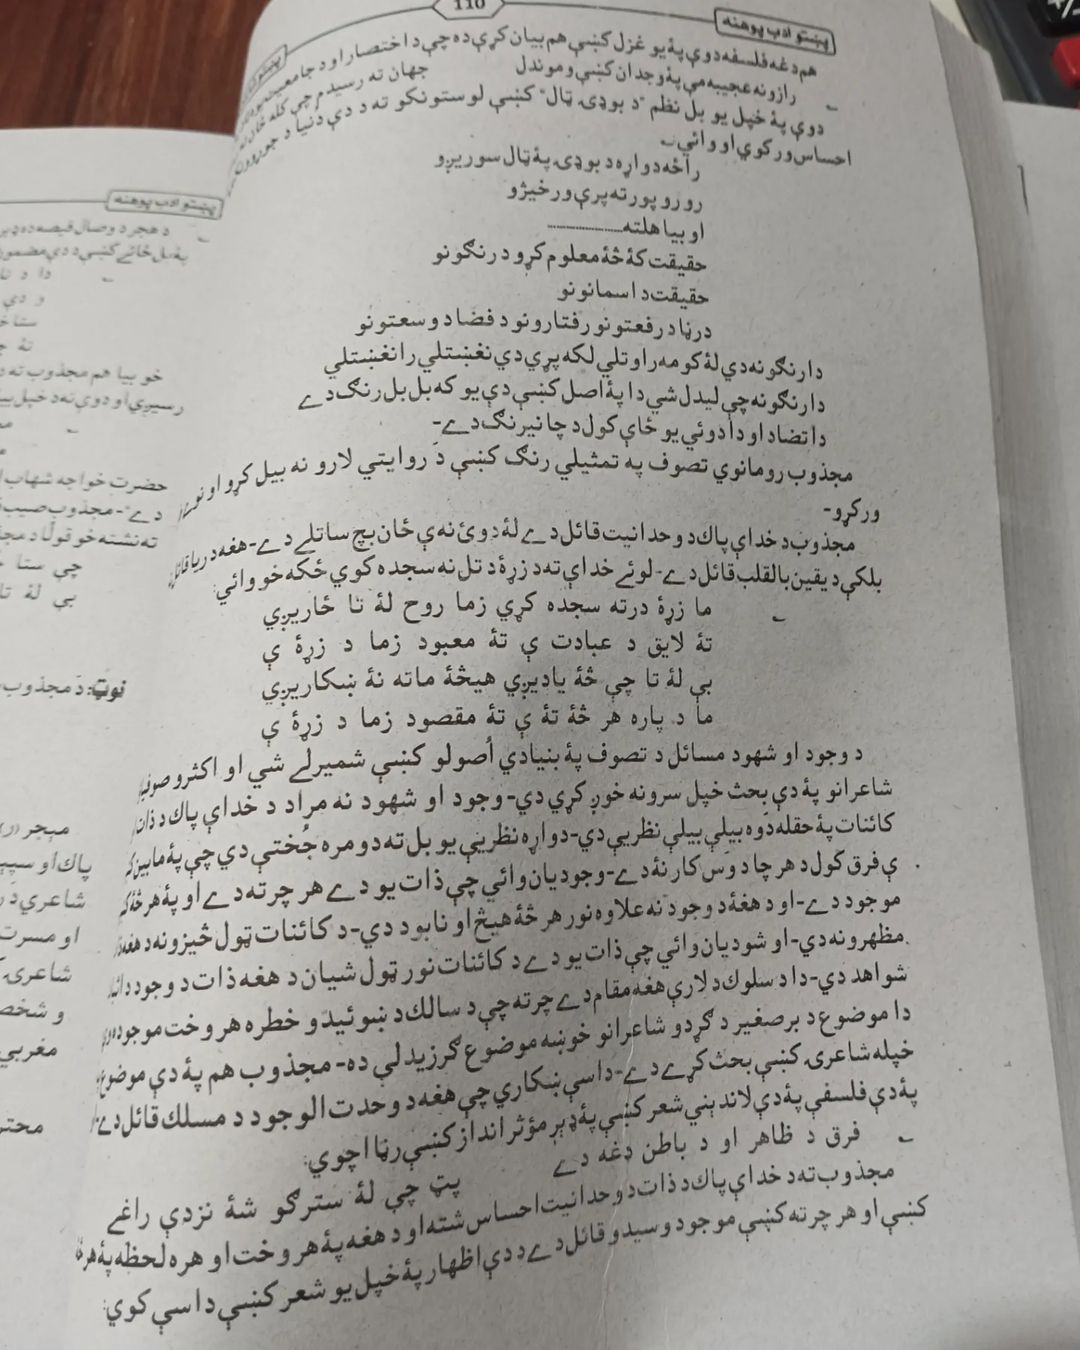 110
پښتو ادب پوهنه
هم دغه فلسفه دوې پۀ يو غزل کښې هم بيان کړې ده چې د اختصار او د جامعيت
رازونه عجيبه مې پۀ وجدان کښې وموندل
جهان ته رسيدم چې کله ځان ته
دوې پۀ خپل يو بل نظم "د بوډۍ ټال" کښې لوستونکو ته د دې دنيا د
احساس ورکوي او وائي
راځه دواړه د بوډۍ پۀ ټال سور يږو
رورو پورته پرې ورخيژو
او بيا هلته
حقيقت کۀ څۀ معلوم کړو د رنګونو
حقيقت د اسمانونو
د رڼا د رفعتونو رفتارونو د فضا د وسعتونو
دا رنګونه دي لۀ کومه راوتلي لکه پړي دي نغښتلي رانغښتلي
دا رنګونه چې ليدل شي دا پۀ اصل کښې دې يو که بل بل رنګ دے
دا تضاد او دا دوئي يو ځاې کول د چا نيرنګ دے-
مجذوب رومانوي تصوف په تمثيلي رنګ کښې دَ روايتي لارو نه بيل کړو او
ورکړو-
مجذوب د خداې پاك د وحدانيت قائل دے لۀ دوئ نه ې ځان بچ ساتلے دے- هغه د ريا قائل
بلکې د يقين بالقلب قائل دے- لوئے خداې ته د زړۀ د تل نه سجده کوي ځکه خو وائي:
ما زړۀ درته سجده کړي زما روح لۀ تا ځاريږي
تۀ لايق د عبادت ې تۀ معبود زما د زړۀ ې
بې لۀ تا چې څۀ ياديږي هيڅۀ ماته نۀ ښکاريږي
ما د پاره هر څۀ تۀ ې تۀ مقصود زما د زړۀ ې
د وجود او شهود مسائل د تصوف پۀ بنيادي اُصولو کښې شميرلے شي او اکثرو
شاعرانو پۀ دې بحث خپل سرونه خوږ کړي دي- وجود او شهود نه مراد د خداې پاك د ذات
کائنات پۀ حقله دَوه بيلې بيلې نظريې دي- دواړه نظريې يو بل ته دومره جُختې دي چې پۀ مابين
ې فرق کول د هر چا د وَس کار نۀ دے- وجوديان وائي چې ذات يو دے هر چرته دے او پۀ هر څۀ
موجود دے- او د هغۀ د وجود نه علاوه نور هر څۀ هيڅ او نابود دي- د کائنات ټول څيزونه د هغه
مظهرونه دي- او شوديان وائي چې ذات يو دے د کائنات نور ټول شيان د هغه ذات د وجود
شواهد دي- دا د سلوك د لارې هغه مقام دے چرته چې د سالك د ښوئيدو خطره هر وخت موجوده
دا موضوع د برصغير د ګردو شاعرانو خوښه موضوع ګرزيدلې ده- مجذوب هم پۀ دې موضوع
خپله شاعرۍ کښې بحث کړے دے- داسې ښکاري چې هغه د وحدت الوجود د مسلك قائل دے-
پۀ دې فلسفې پۀ دې لاندېني شعر کښې پۀ ډېر مؤثر انداز کښې رڼا اچوي:
فرق د ظاهر او د باطن دغه دے
پټ چې لۀ سترګو شۀ نزدې راغے
مجذوب ته د خداې پاك د ذات د وحدانيت احساس شته او د هغه پۀ هر وخت او هره لحظه پۀ
کښې او هر چرته کښې موجود وسيدو قائل دے د دې اظهار پۀ خپل يو شعر کښې داسې کوي:
پښتو ادب پوهنه
د هجر د وصال قيصه ده
پۀ بل ځائے کښې د دې مضمون
دا د
و دې
ستا
تۀ
خو بيا هم مجذوب ته د
رسيږي او دوې ته د خپل
حضرت خواجه شهاب
دے"- مجذوب صيب
ته نشته خو قول د
چې ستا
بې لۀ تا
نوټ: دَ مجذوب
مېجر (ر)
پاك او سپې
شاعري دَ
او مسرت
شاعرۍ
و شخص
مغربي
محتر